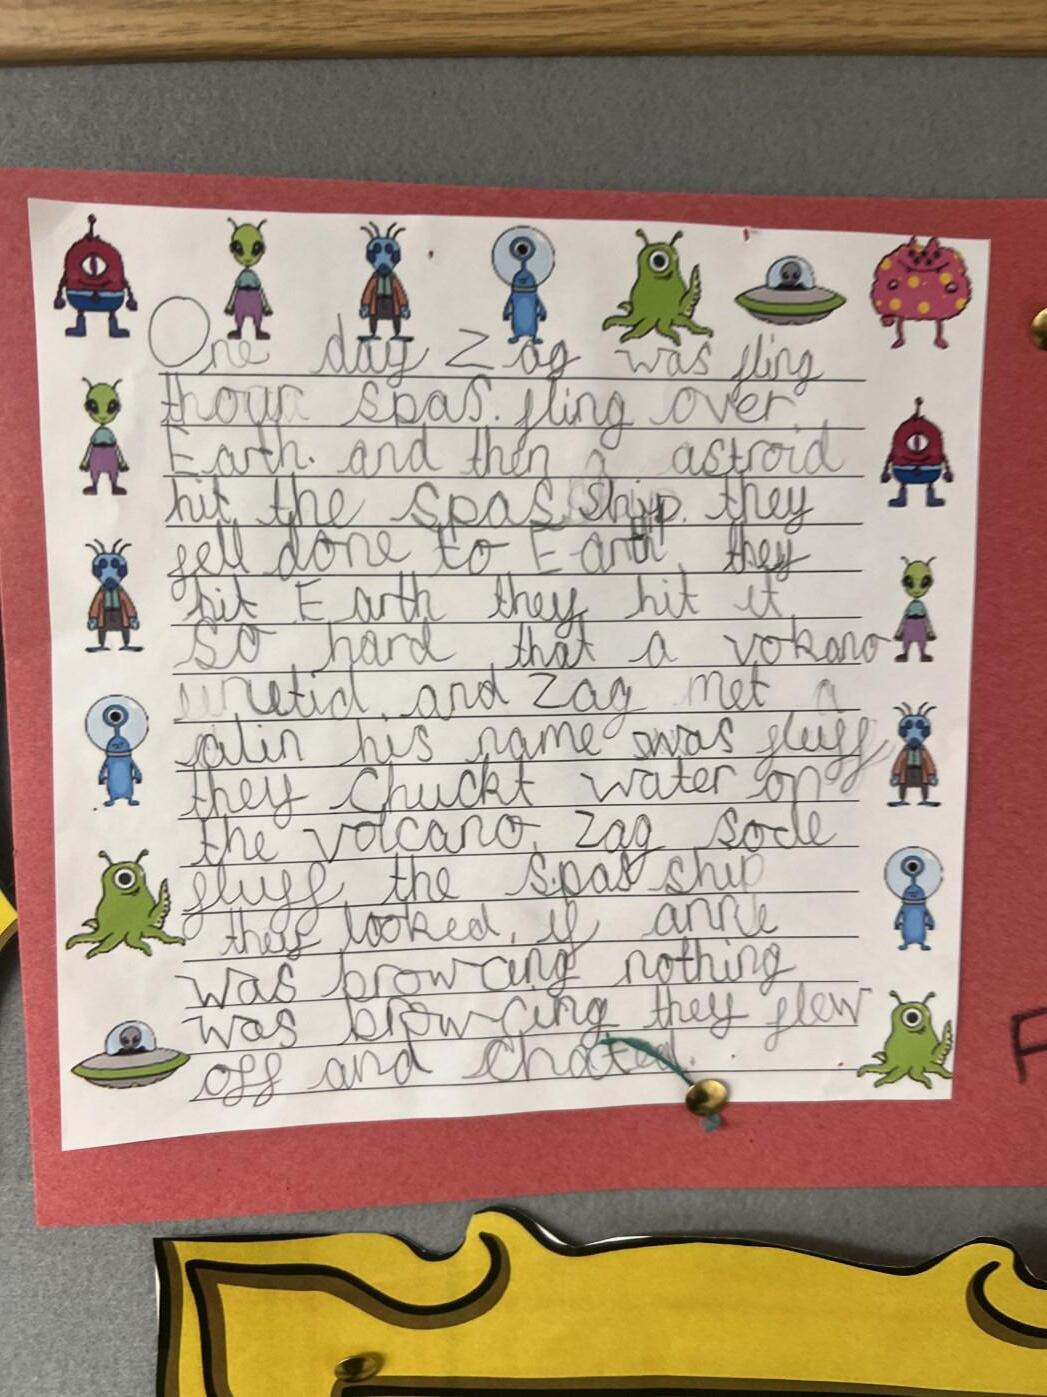 One day Zag was fling
thoura spas. fling over
Earth. and then a astroid
hit the spas ship. they
fell done to Earth. they
hit Earth they hit it
so hard that a vokano
uretid. and Zag met a
alin his name was fluff
they chuckt water on
the volcano. Zag sode
fluff the spas ship
they looked if anne
was browcing nothing
was browcing they flew
off and chated.
F